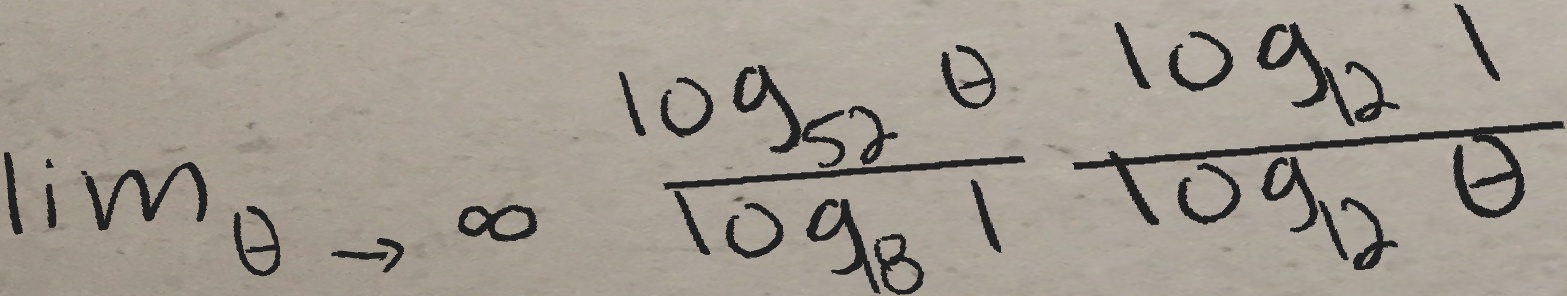 \lim_{\theta \to \infty} \frac{\log_{52} \theta}{\log_{8} 1} \frac{\log_{12} 1}{\log_{12} \theta}